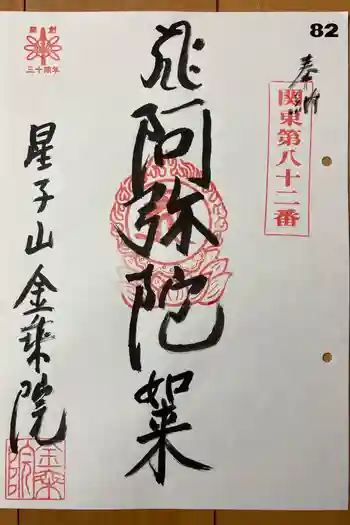 82
奉拝
関東第八十二番
阿弥陀如来
開創
三十周年
星子山金乗院
金乗院